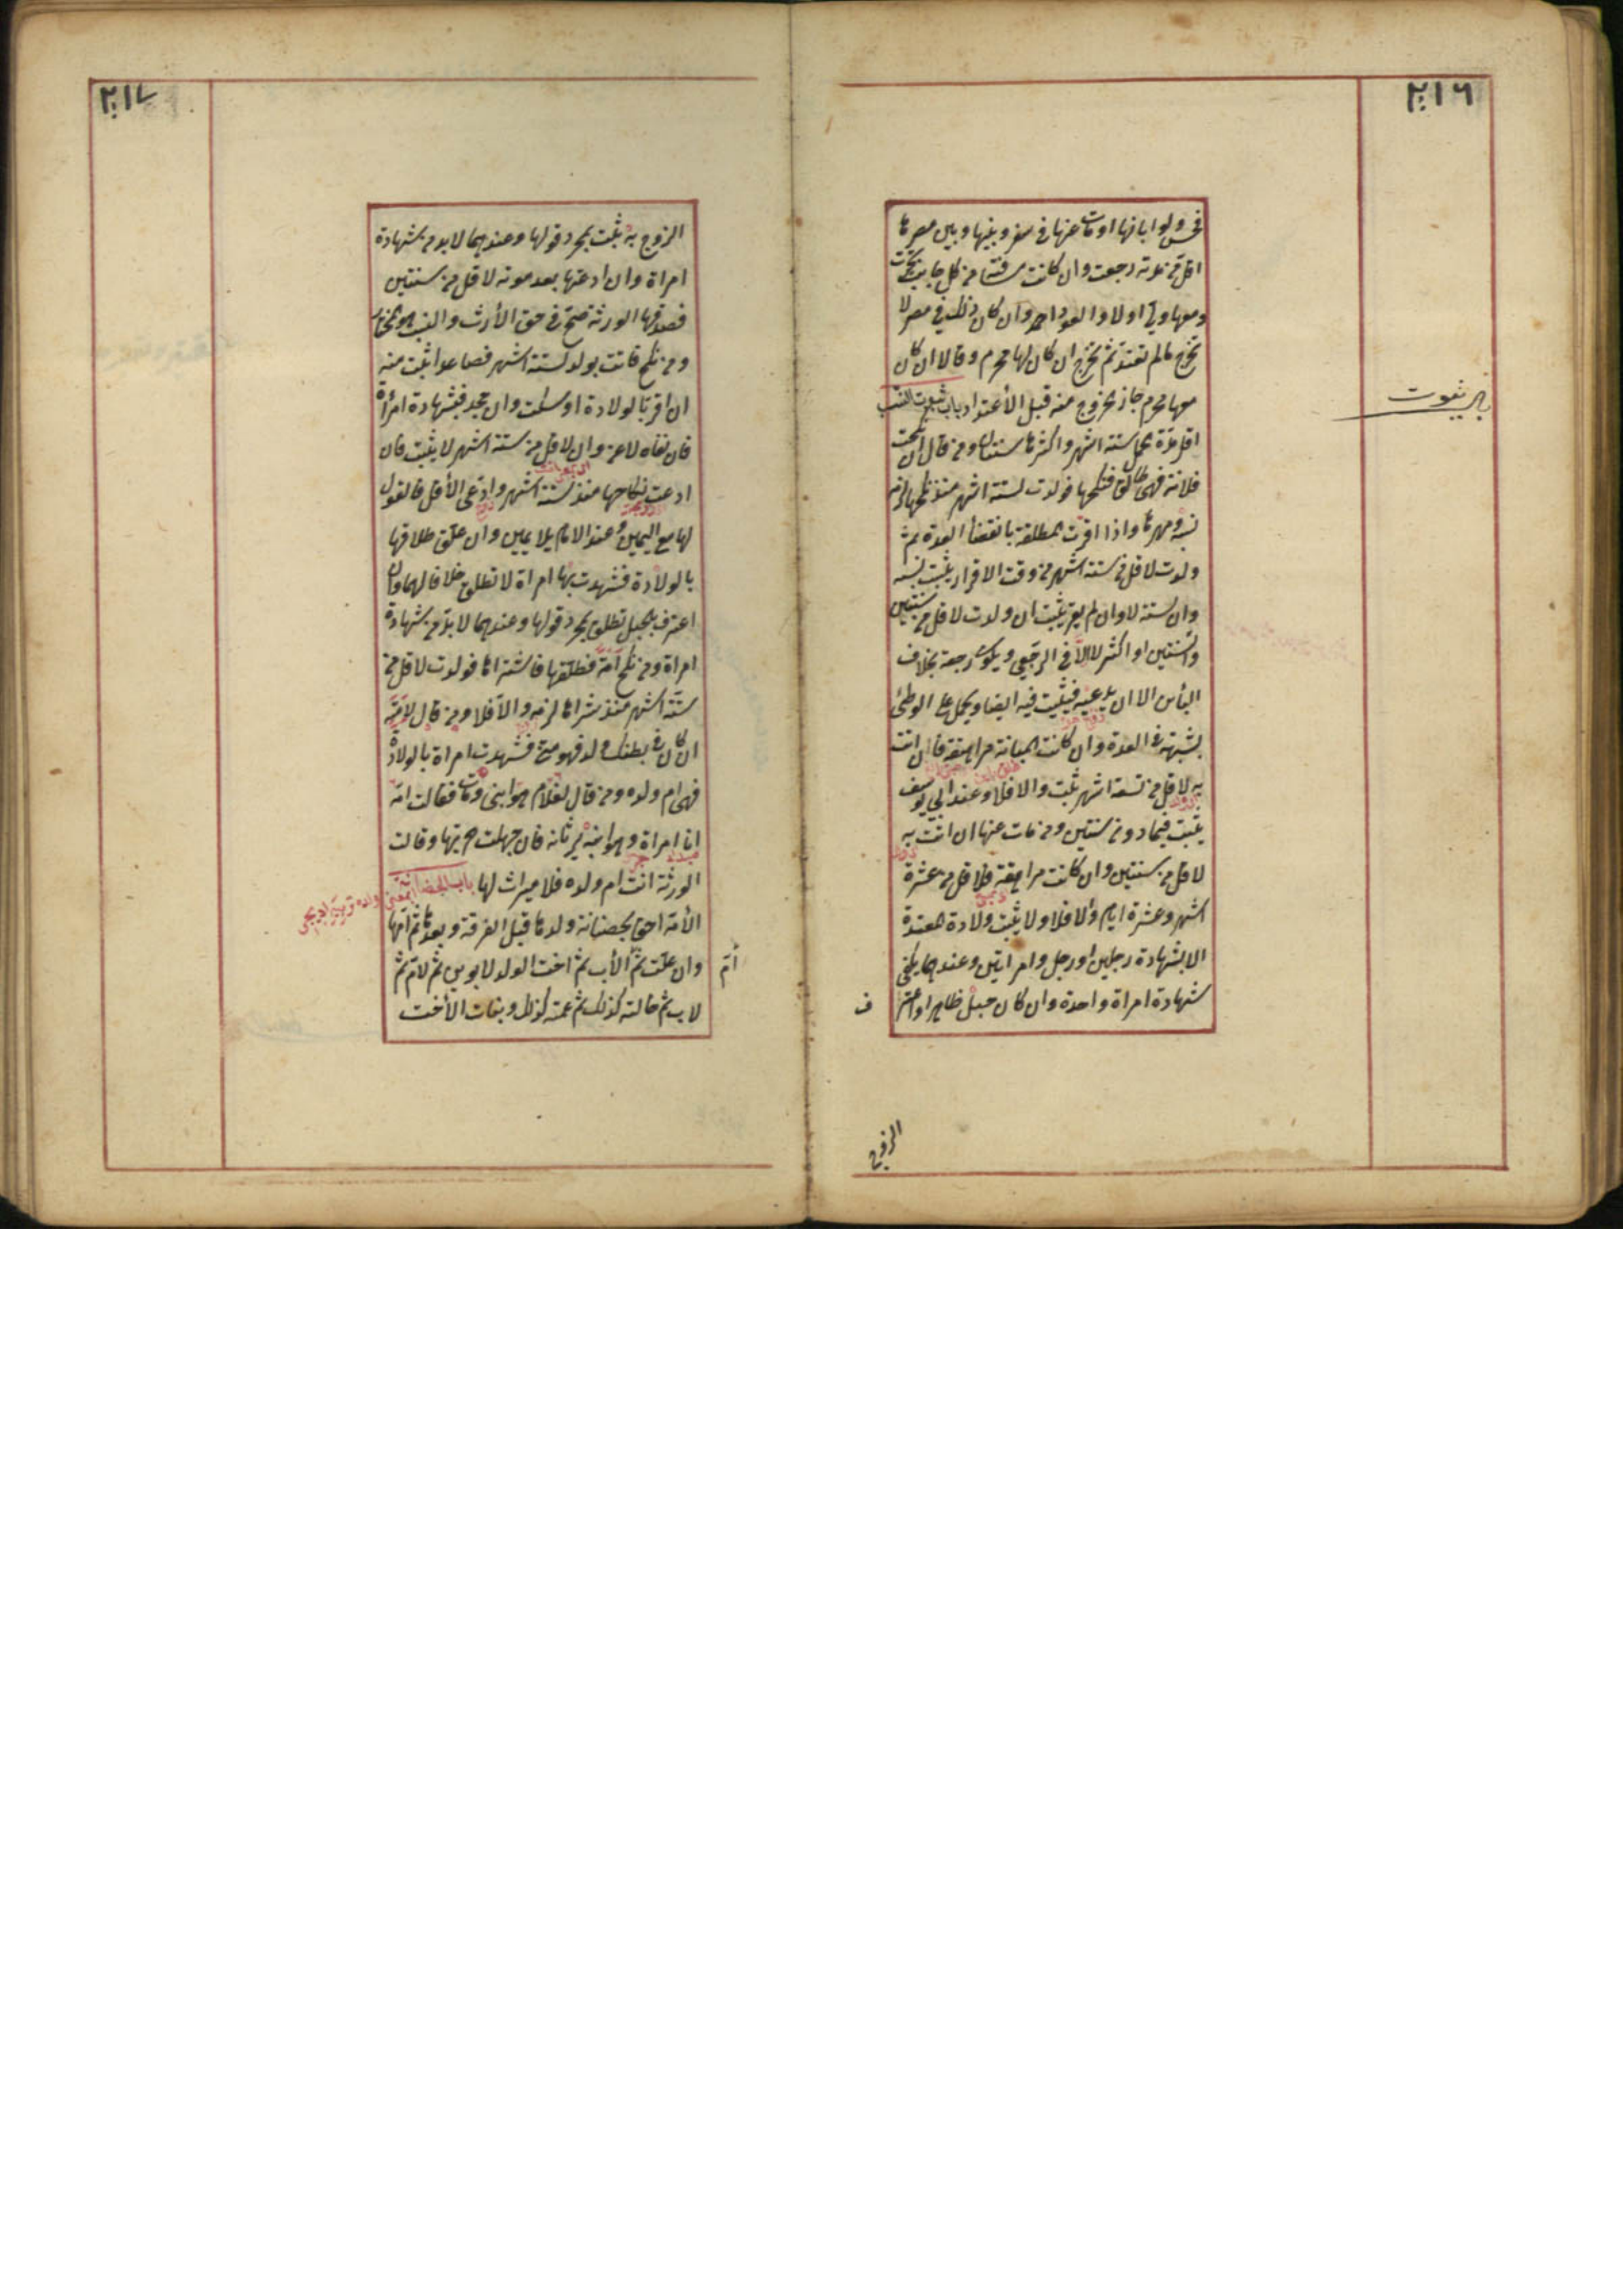 ٢١٦
فحش ولو ابانها او مات عنها في سفر وبينها وبين مصرها
اقل من مدته رجعت وان كانت مسافته من كل جانب تخيرت
ومعها ولي او لا والعود احمد وان كان ذلك في مصر لا
تخرج ما لم تعتد ثم تخرج ان كان لها محرم وقالا ان كان
معها محرم جاز الخروج منه قبل الأعتداد باب ثبوت النسب
باب ثبوت
اقل مدة الحمل ستة اشهر واكثرها سنتان ومن قال ان نكحت
فلانة فهي طالق فنكحها فولدت لستة اشهر منذ نكحها لزمه
نسبه ومهرها واذا اقرت المطلقة بانقضأ العدة ثم
ولدت لاقل من ستة اشهر من وقت الاقرار يثبت نسبه
وان لستة لا وان لم يقر يثبت ان ولدت لاقل من سنتين
وان لسنتين او اكثر لا الا في الرجعي ويكون رجعة بخلاف
البأس الا ان يدعيه فيثبت فيه ايضا ويحمل على الوطئ
بشبهة في العدة وان كانت المبانة مراهقة فان اتت
به لاقل من تسعة اشهر ثبت والا فلا وعند ابي يوسف
يثبت فيما دون سنتين ومن مات عنها ان اتت به
لاقل من سنتين وان كانت مراهقة فلاقل من عشرة
اشهر وعشرة ايام والا فلا ولا يثبت ولادة المعتدة
الا بشهادة رجلين او رجل وامراتين وعندهما يكفي
شهادة امراة واحدة وان كان حبل ظاهر او اعتر
ف
الزوج
٢١٧
الزوج به ثبت بمجرد قولها وعندهما لا بد من شهادة
امراة وان ادعتها بعد موته لاقل من سنتين
فصدقها الورثة صح في حق الأرث والنسب هو المختار
ومن نكح فاتت بولد لستة اشهر فصاعدا ثبت منه
ان اقر بالولادة او سكت وان جحد فبشهادة امرأة
فان نفاه لاعن وان لاقل من ستة اشهر لا يثبت فان
ادعت نكاحها منذ ستة اشهر وادعى الأقل فالقول
لها مع اليمين وعند الامام بلا يمين وان علق طلاقها
بالولادة فشهدت بها امراة لا تطلق خلافا لهما وان
اعترف بحبل تطلق بمجرد قولها وعندهما لا بد من شهادة
امراة ومن نكح امة فطلقها فاشتراها فولدت لاقل من
ستة اشهر منذ شراها لزمه والا فلا ومن قال لامته
ان كان في بطنك ولد فهو مني فشهدت امراة بالولادة
فهي ام ولده ومن قال لغلام هو ابني ومات فقالت امه
انا امراة وهو ابنه يرثانه فان جهلت حريتها وقالت
الورثة انت ام ولده فلا ميراث لها باب الحضانة
الأمة احق بحضانة ولدها قبل الفرقة وبعدها ثم امها
وان علت ثم الأب ثم اخت الولد لابوين ثم لام ثم
ام
لاب ثم خالته كذلك ثم عمته كذلك وبنات الأخت